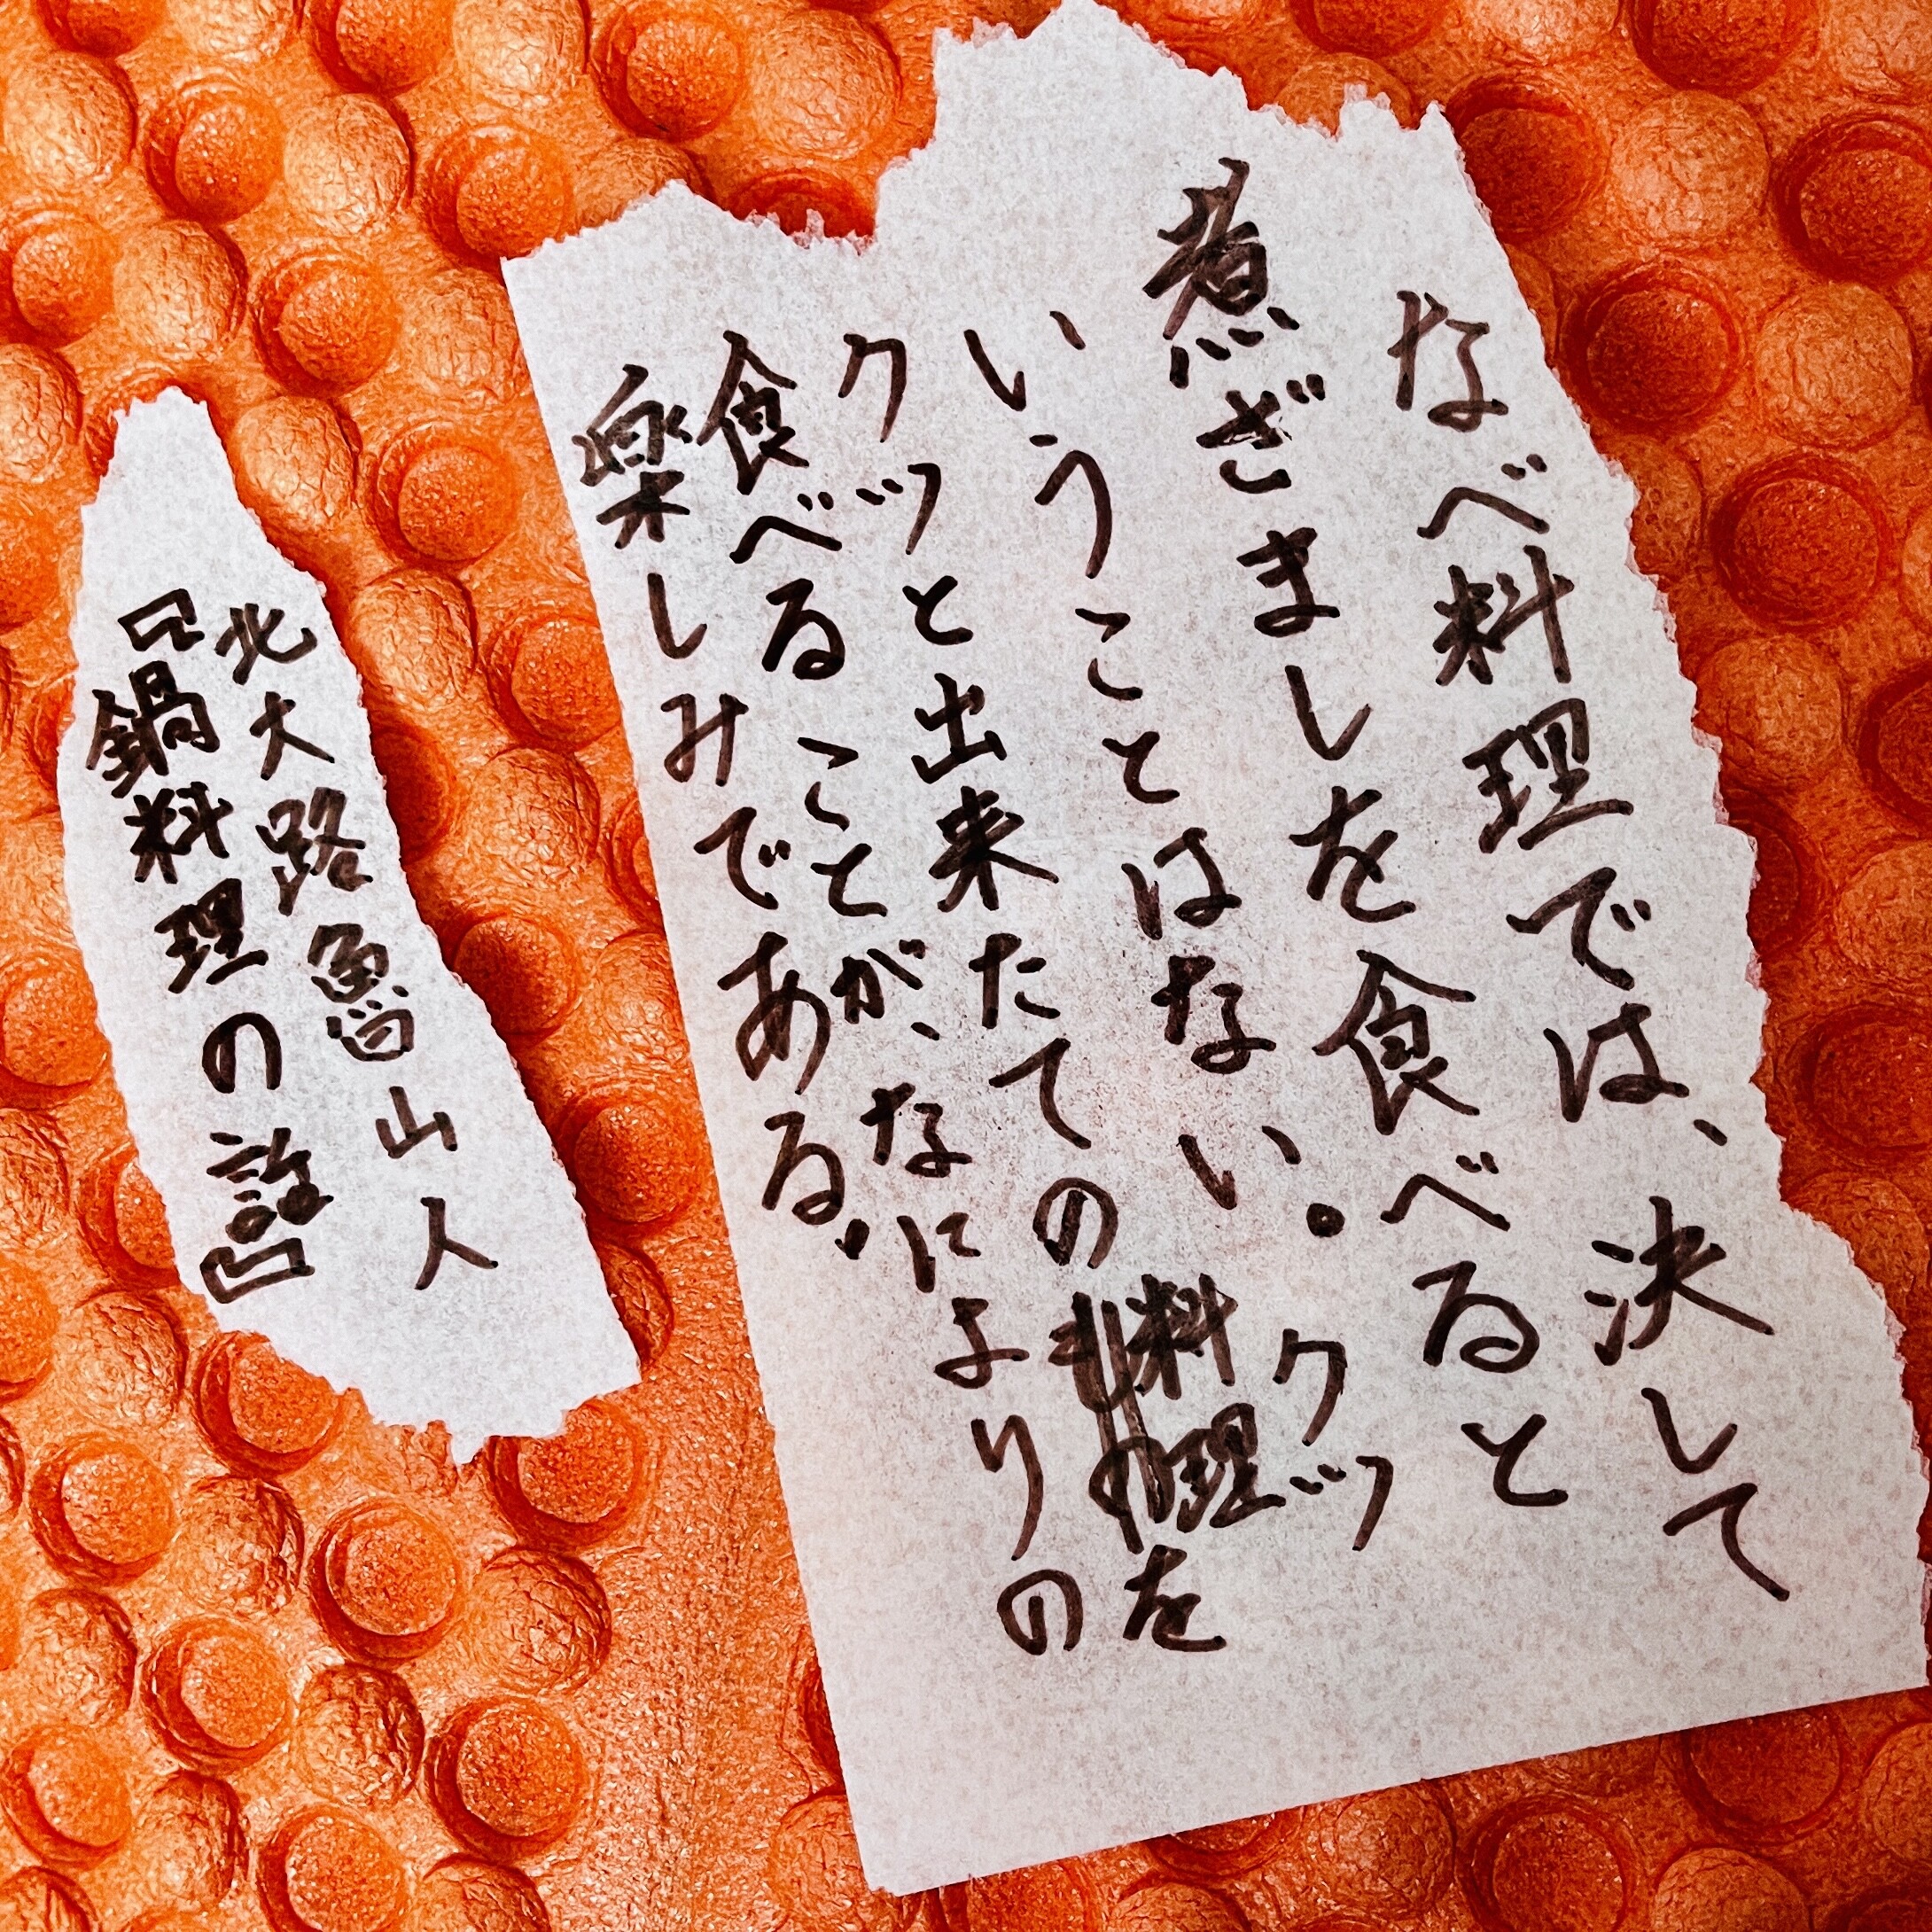 なべ料理では、決して
煮ざましを食べると
いうことはない。クツ
クツと出来たての料理を
食べることが、なによりの
楽しみである。
北大路魯山人
『鍋料理の話』